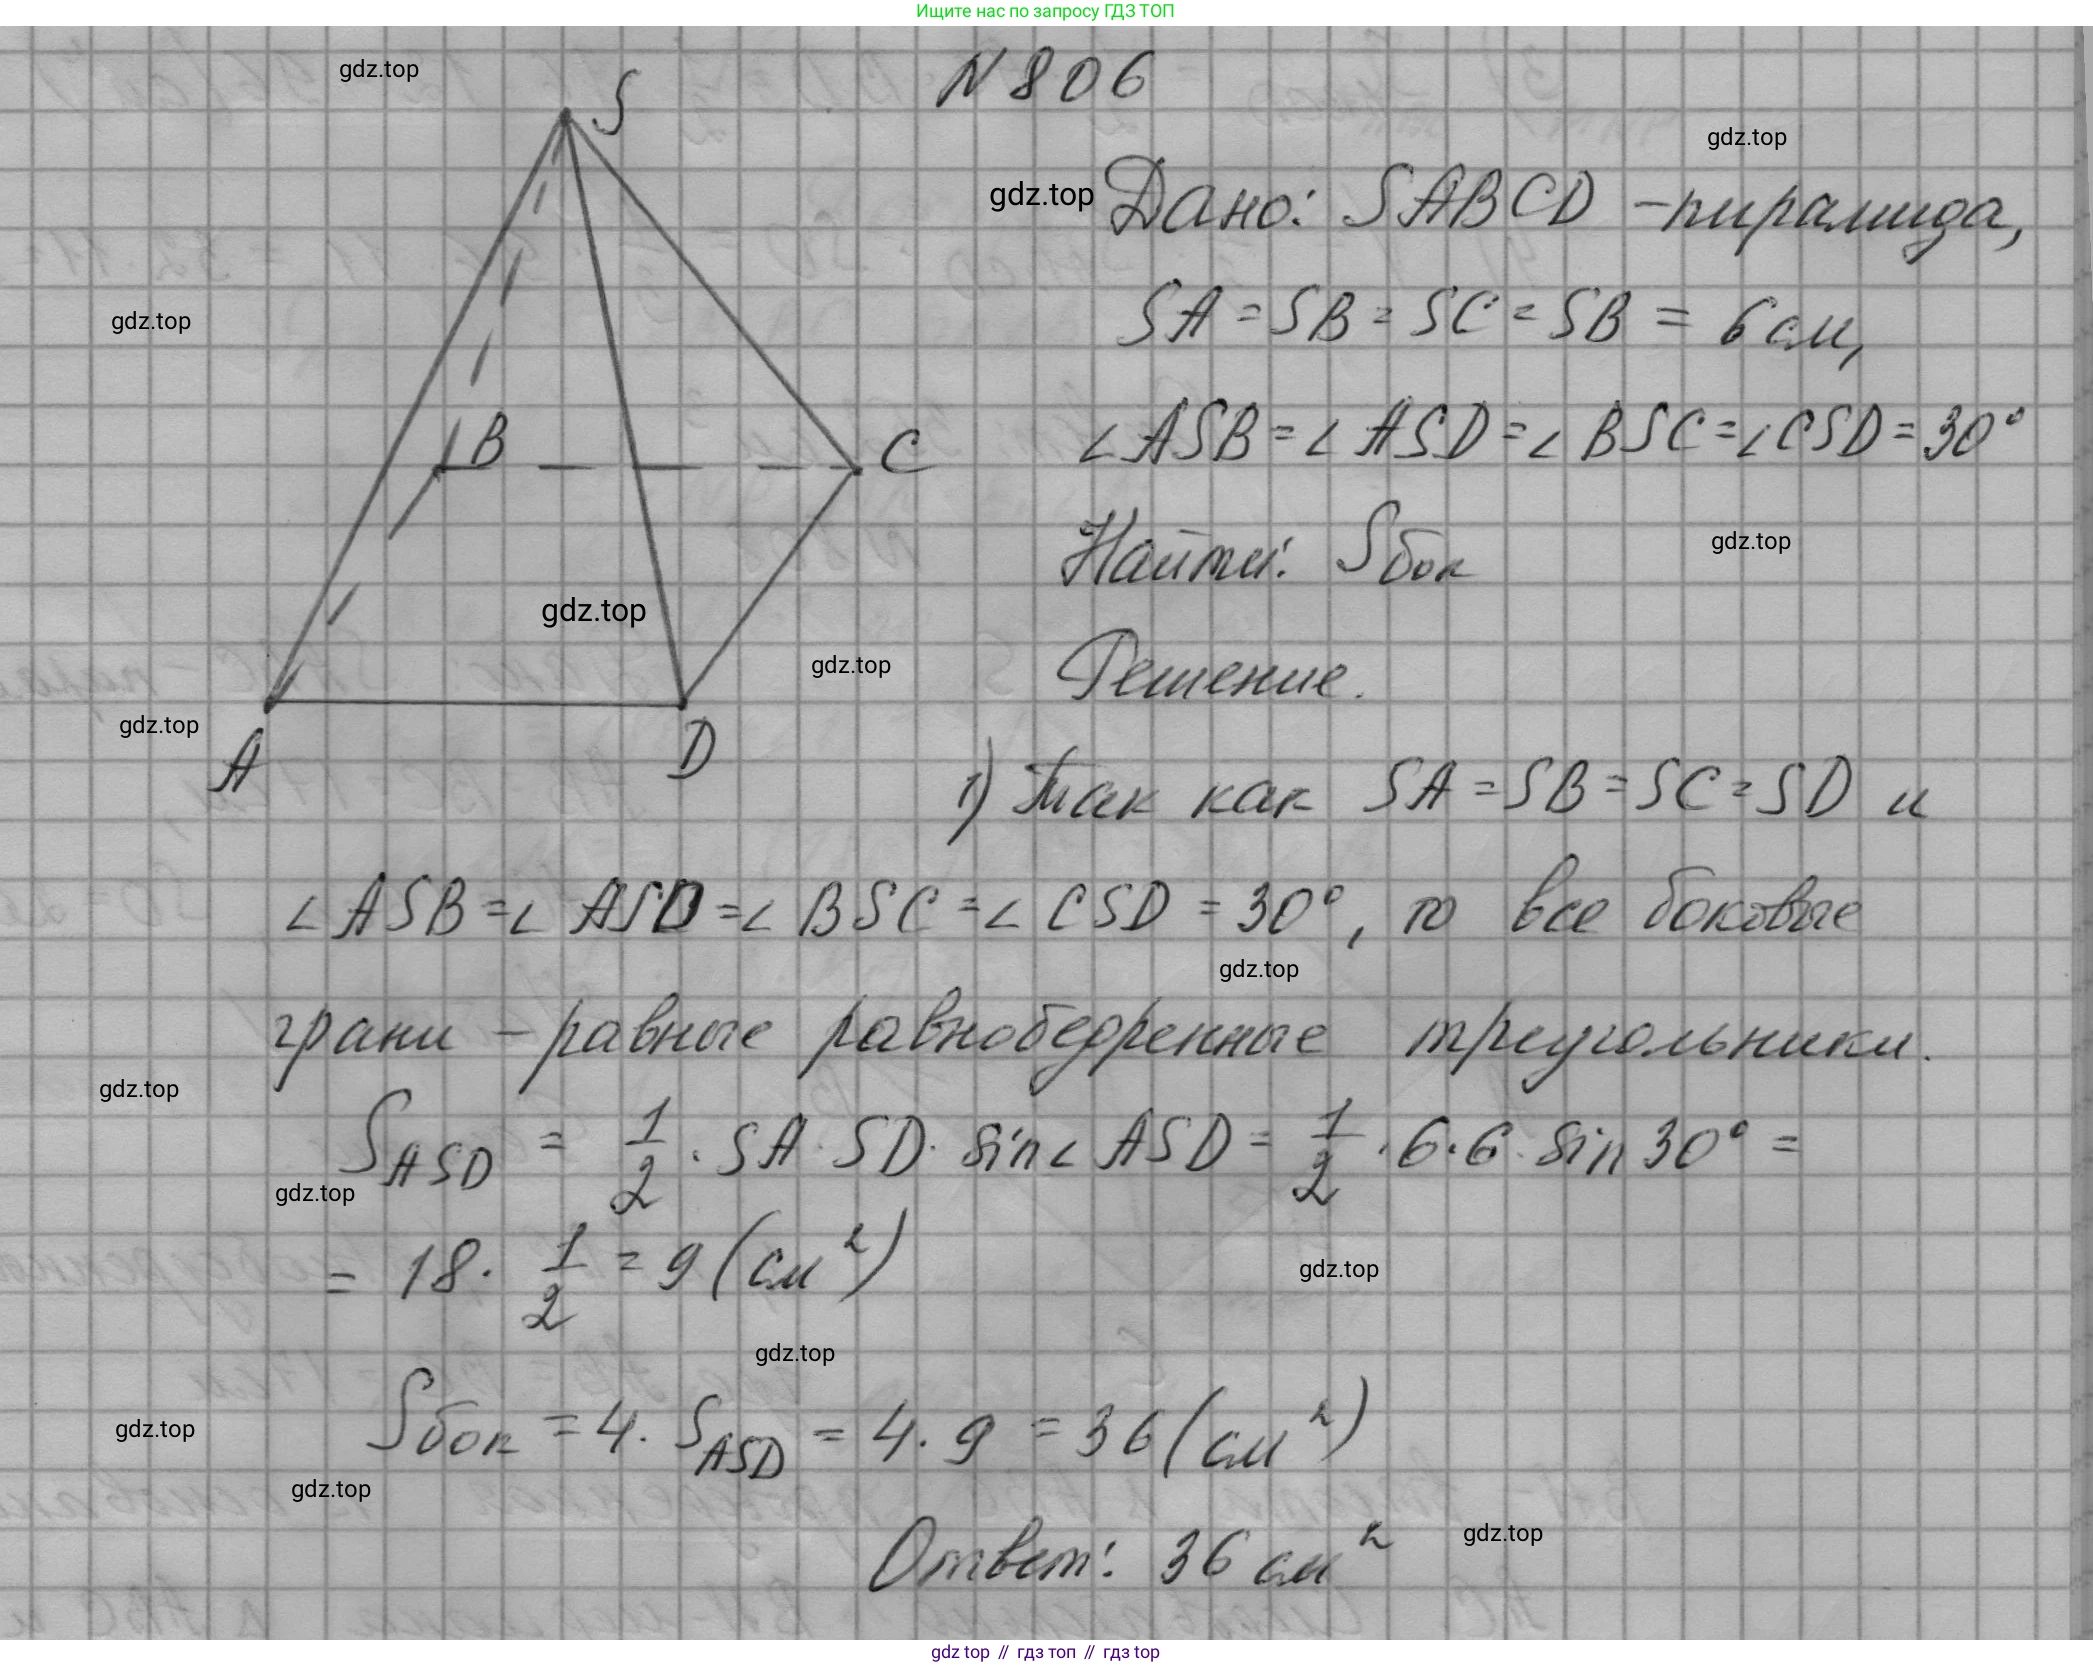 Ищите нас по запросу ГДЗ ТОП
gdz.top
S
N 806
gdz.top
gdz.top
Дано: SABCD - пирамида,
gdz.top
SA = SB = SC = SB = 6 см,
B
C
∠ASB = ∠ASD = ∠BSC = ∠CSD = 30°
gdz.top
Найти: Sбок
gdz.top
gdz.top
Решение.
gdz.top
A
D
1) Так как SA = SB = SC = SD и
∠ASB = ∠ASD = ∠BSC = ∠CSD = 30°, то все боковые
gdz.top
грани - равные равнобедренные треугольники.
gdz.top
S_ASD = 1/2 · SA · SD · sin∠ASD = 1/2 · 6 · 6 · sin 30° =
gdz.top
= 18 · 1/2 = 9 (см²)
gdz.top
gdz.top
Sбок = 4 · S_ASD = 4 · 9 = 36 (см²)
gdz.top
gdz.top
Ответ: 36 см²
gdz.top
gdz top // гдз топ // гдз top